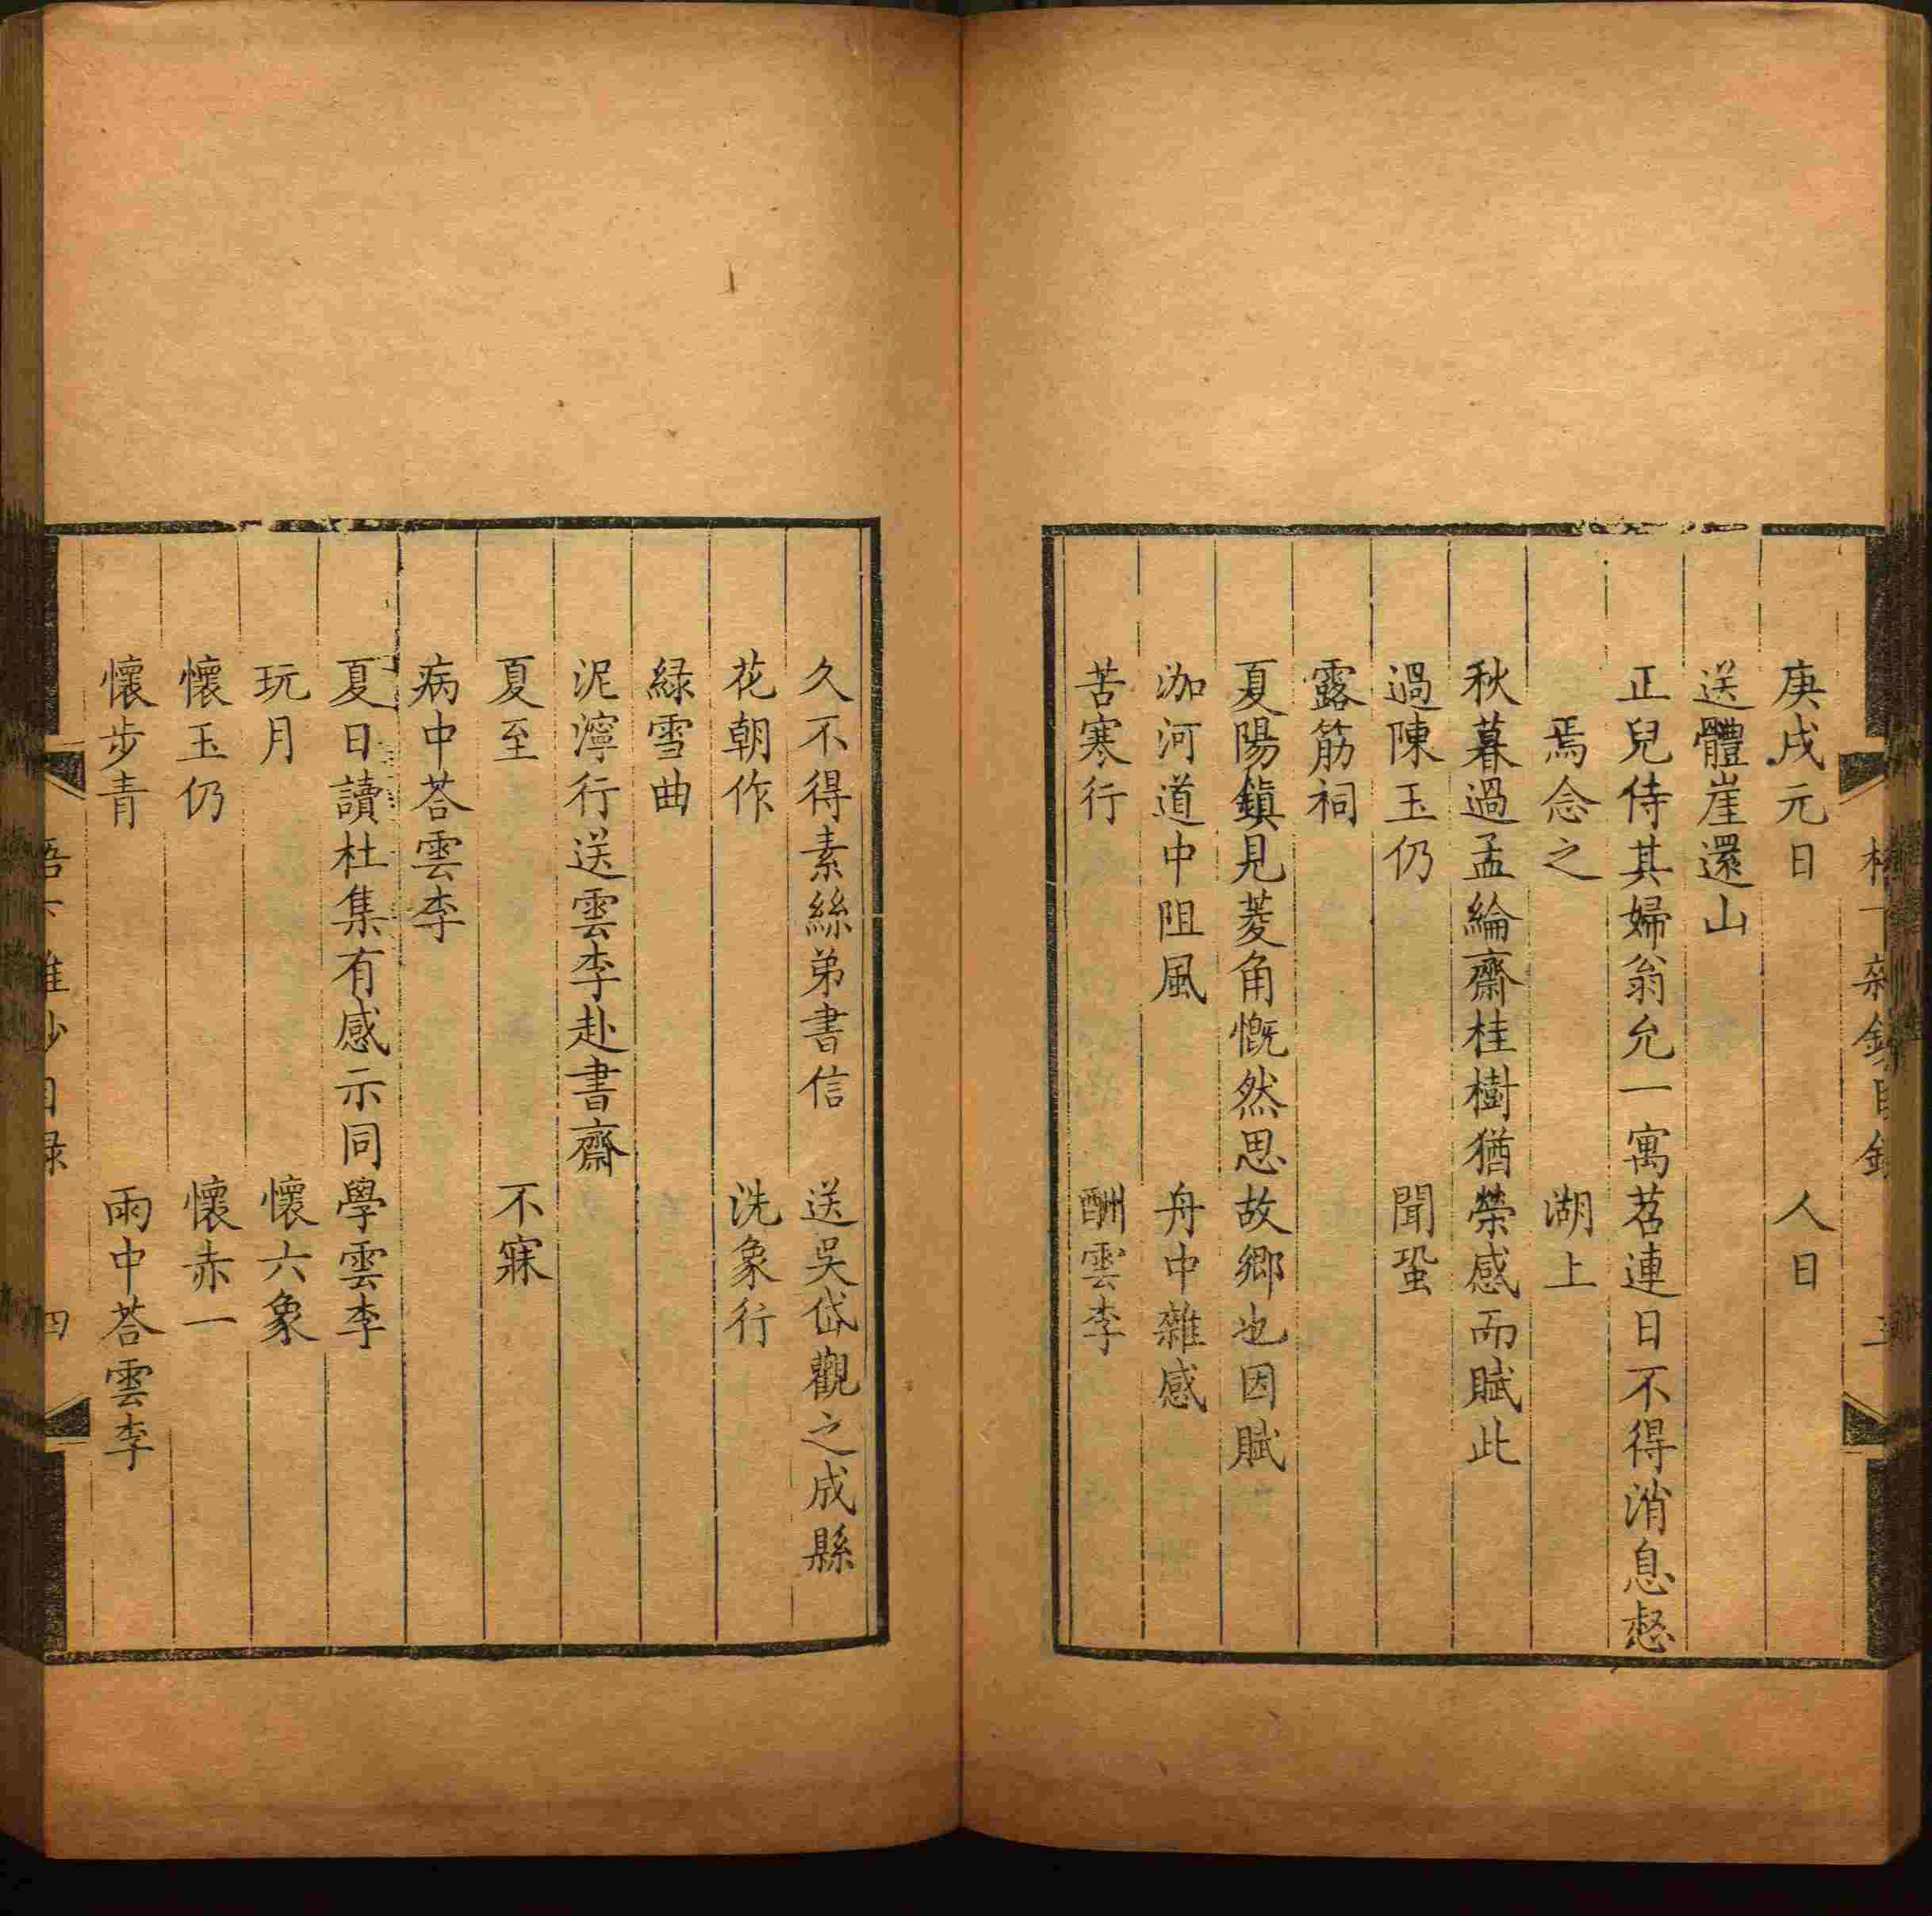 庚戌元日 人日
送體崖還山
正兒侍其婦翁允一寓苕連日不得消息惄
焉念之 湖上
秋暮過孟綸齋桂樹猶榮感而賦此
過陳玉仍 聞蛩
露筋祠
夏陽鎮見菱角慨然思故鄉也因賦
泇河道中阻風 舟中雜感
苦寒行 酬雲李
久不得素絲弟書信 送吳岱觀之成縣
花朝作 洗象行
緑雪曲
泥濘行送雲李赴書齋
夏至 不寐
病中荅雲李
夏日讀杜集有感示同學雲李
玩月 懷六象
懷玉仍 懷赤一
懷步青 雨中荅雲李
目録 四